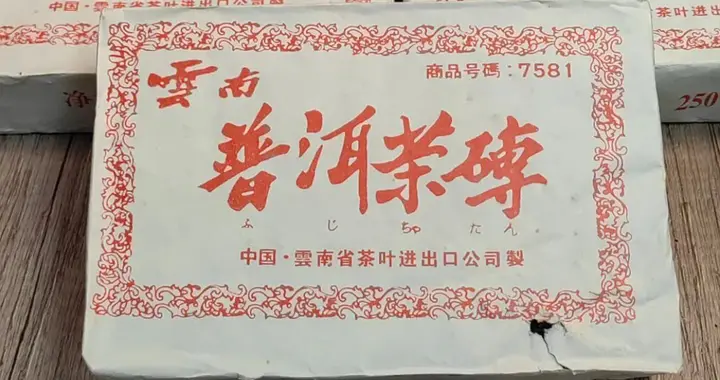 中国·雲南省茶叶进出口公司製
茶叶进出口公
净
250
雲南
商品号碼:7581
普洱茶磚
ふじちゃたん
中国·雲南省茶叶进出口公司製